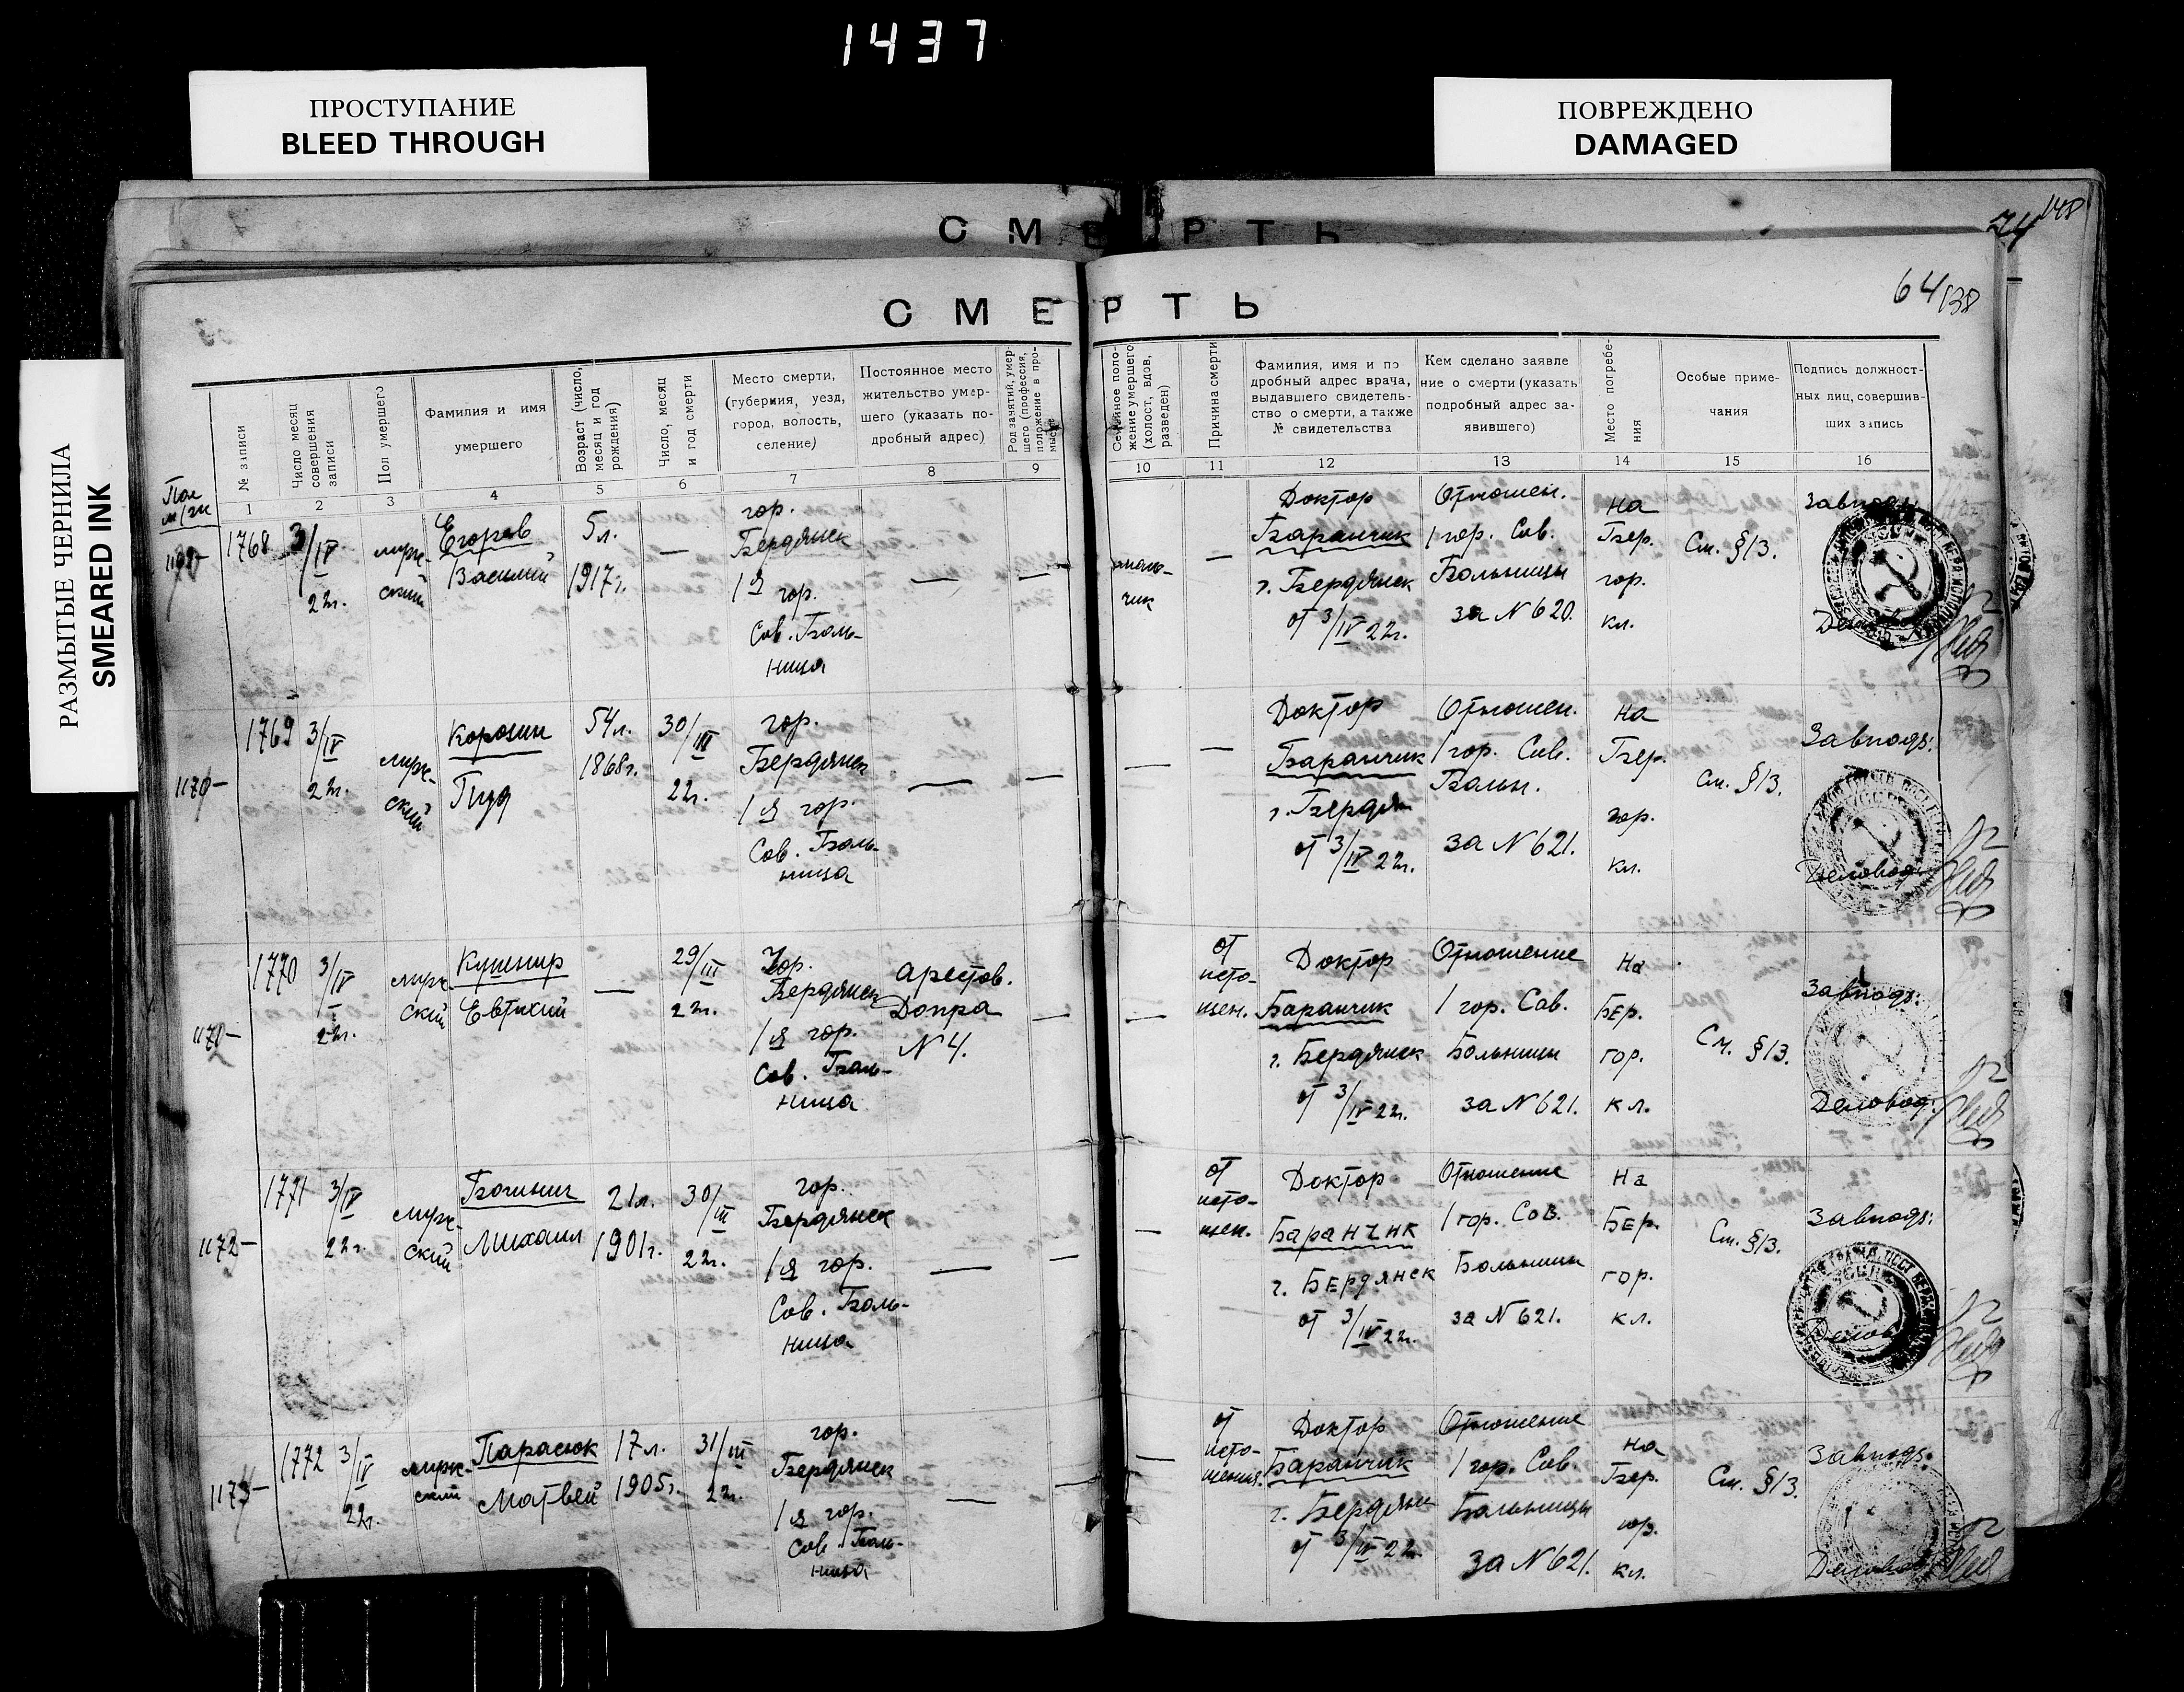 1437
ПРОСТУПАНИЕ
BLEED THROUGH
ПОВРЕЖДЕНО
DAMAGED
РАЗМЫТЫЕ ЧЕРНИЛА
SMEARED INK
СМЕРТЬ
74 148
СМЕРТЬ
64/138
№ записи
Число месяц совершения записи
Пол умершего
Фамилия и имя умершего
Возраст (число, месяц и год рождения)
Число, месяц и год смерти
Место смерти, (губерния, уезд, город, волость, селение)
Постоянное место жительство умершего (указать подробный адрес)
Род занятий, умершего (профессия, положение в промысле
Семейное положение умершего (холост, вдов, разведен)
Причина смерти
Фамилия, имя и подробный адрес врача, выдавшего свидетельство о смерти, а также № свидетельства
Кем сделано заявление о смерти (указать подробный адрес заявившего)
Место погребения
Особые примечания
Подпись должностных лиц, совершивших запись
1 2 3 4 5 6 7 8 9 10 11 12 13 14 15 16
Пол
м/ж
1768
3/IV 22г.
мужский
Егоров Василий
5л. 1917г.
—
гор. Бердянск 1я гор. Сов. Больница
—
—
мальчик
—
Доктор Баранчик г. Бердянск от 3/IV 22г.
Отношен. 1 гор. Сов. Больницы за N 620.
На Бер. гор. кл.
См. §13.
Завподз:
1170—
1769
3/IV 22г.
мужский
Пуд
54л. 1868г.
30/III 22г.
гор. Бердянск 1я гор. Сов. Больница
—
—
—
—
Доктор Баранчик г. Бердян от 3/IV 22г.
Отношен. 1 гор. Сов. Больн. за N 621.
На Бер. гор. кл.
См. §13.
Завподз:
Деловод:
1770
3/IV 22г.
мужский
Кушнир Евтихий
—
29/III 22г.
гор. Бердянск 1я гор. Сов. Больница
арестов. Допра N 4.
—
—
от истощен.
Доктор Баранчик г. Бердянск от 3/IV 22г.
Отношение 1 гор. Сов. Больницы за N 621.
На Бер. гор. кл.
См. §13.
Завподз:
Деловод:
1172—
1771
3/IV 22г.
мужский
Михаил
21л. 1901г.
30/III 22г.
гор. Бердянск 1я гор. Сов. Больница
—
—
—
от истощен.
Доктор Баранчик г. Бердянск от 3/IV 22г.
Отношение 1 гор. Сов. Больницы за N 621.
На Бер. гор. кл.
См. §13.
Завподз:
1173—
1772
3/IV 22г.
мужский
Парасюк Матвей
17л. 1905г.
31/III 22г.
гор. Бердянск 1я гор. Сов. Больница
—
—
—
от истощения.
Доктор Баранчик г. Бердянск от 3/IV 22г.
Отношение 1 гор. Сов. Больницы за N 621.
На Бер. гор. кл.
См. §13.
Завподз:
Деловод